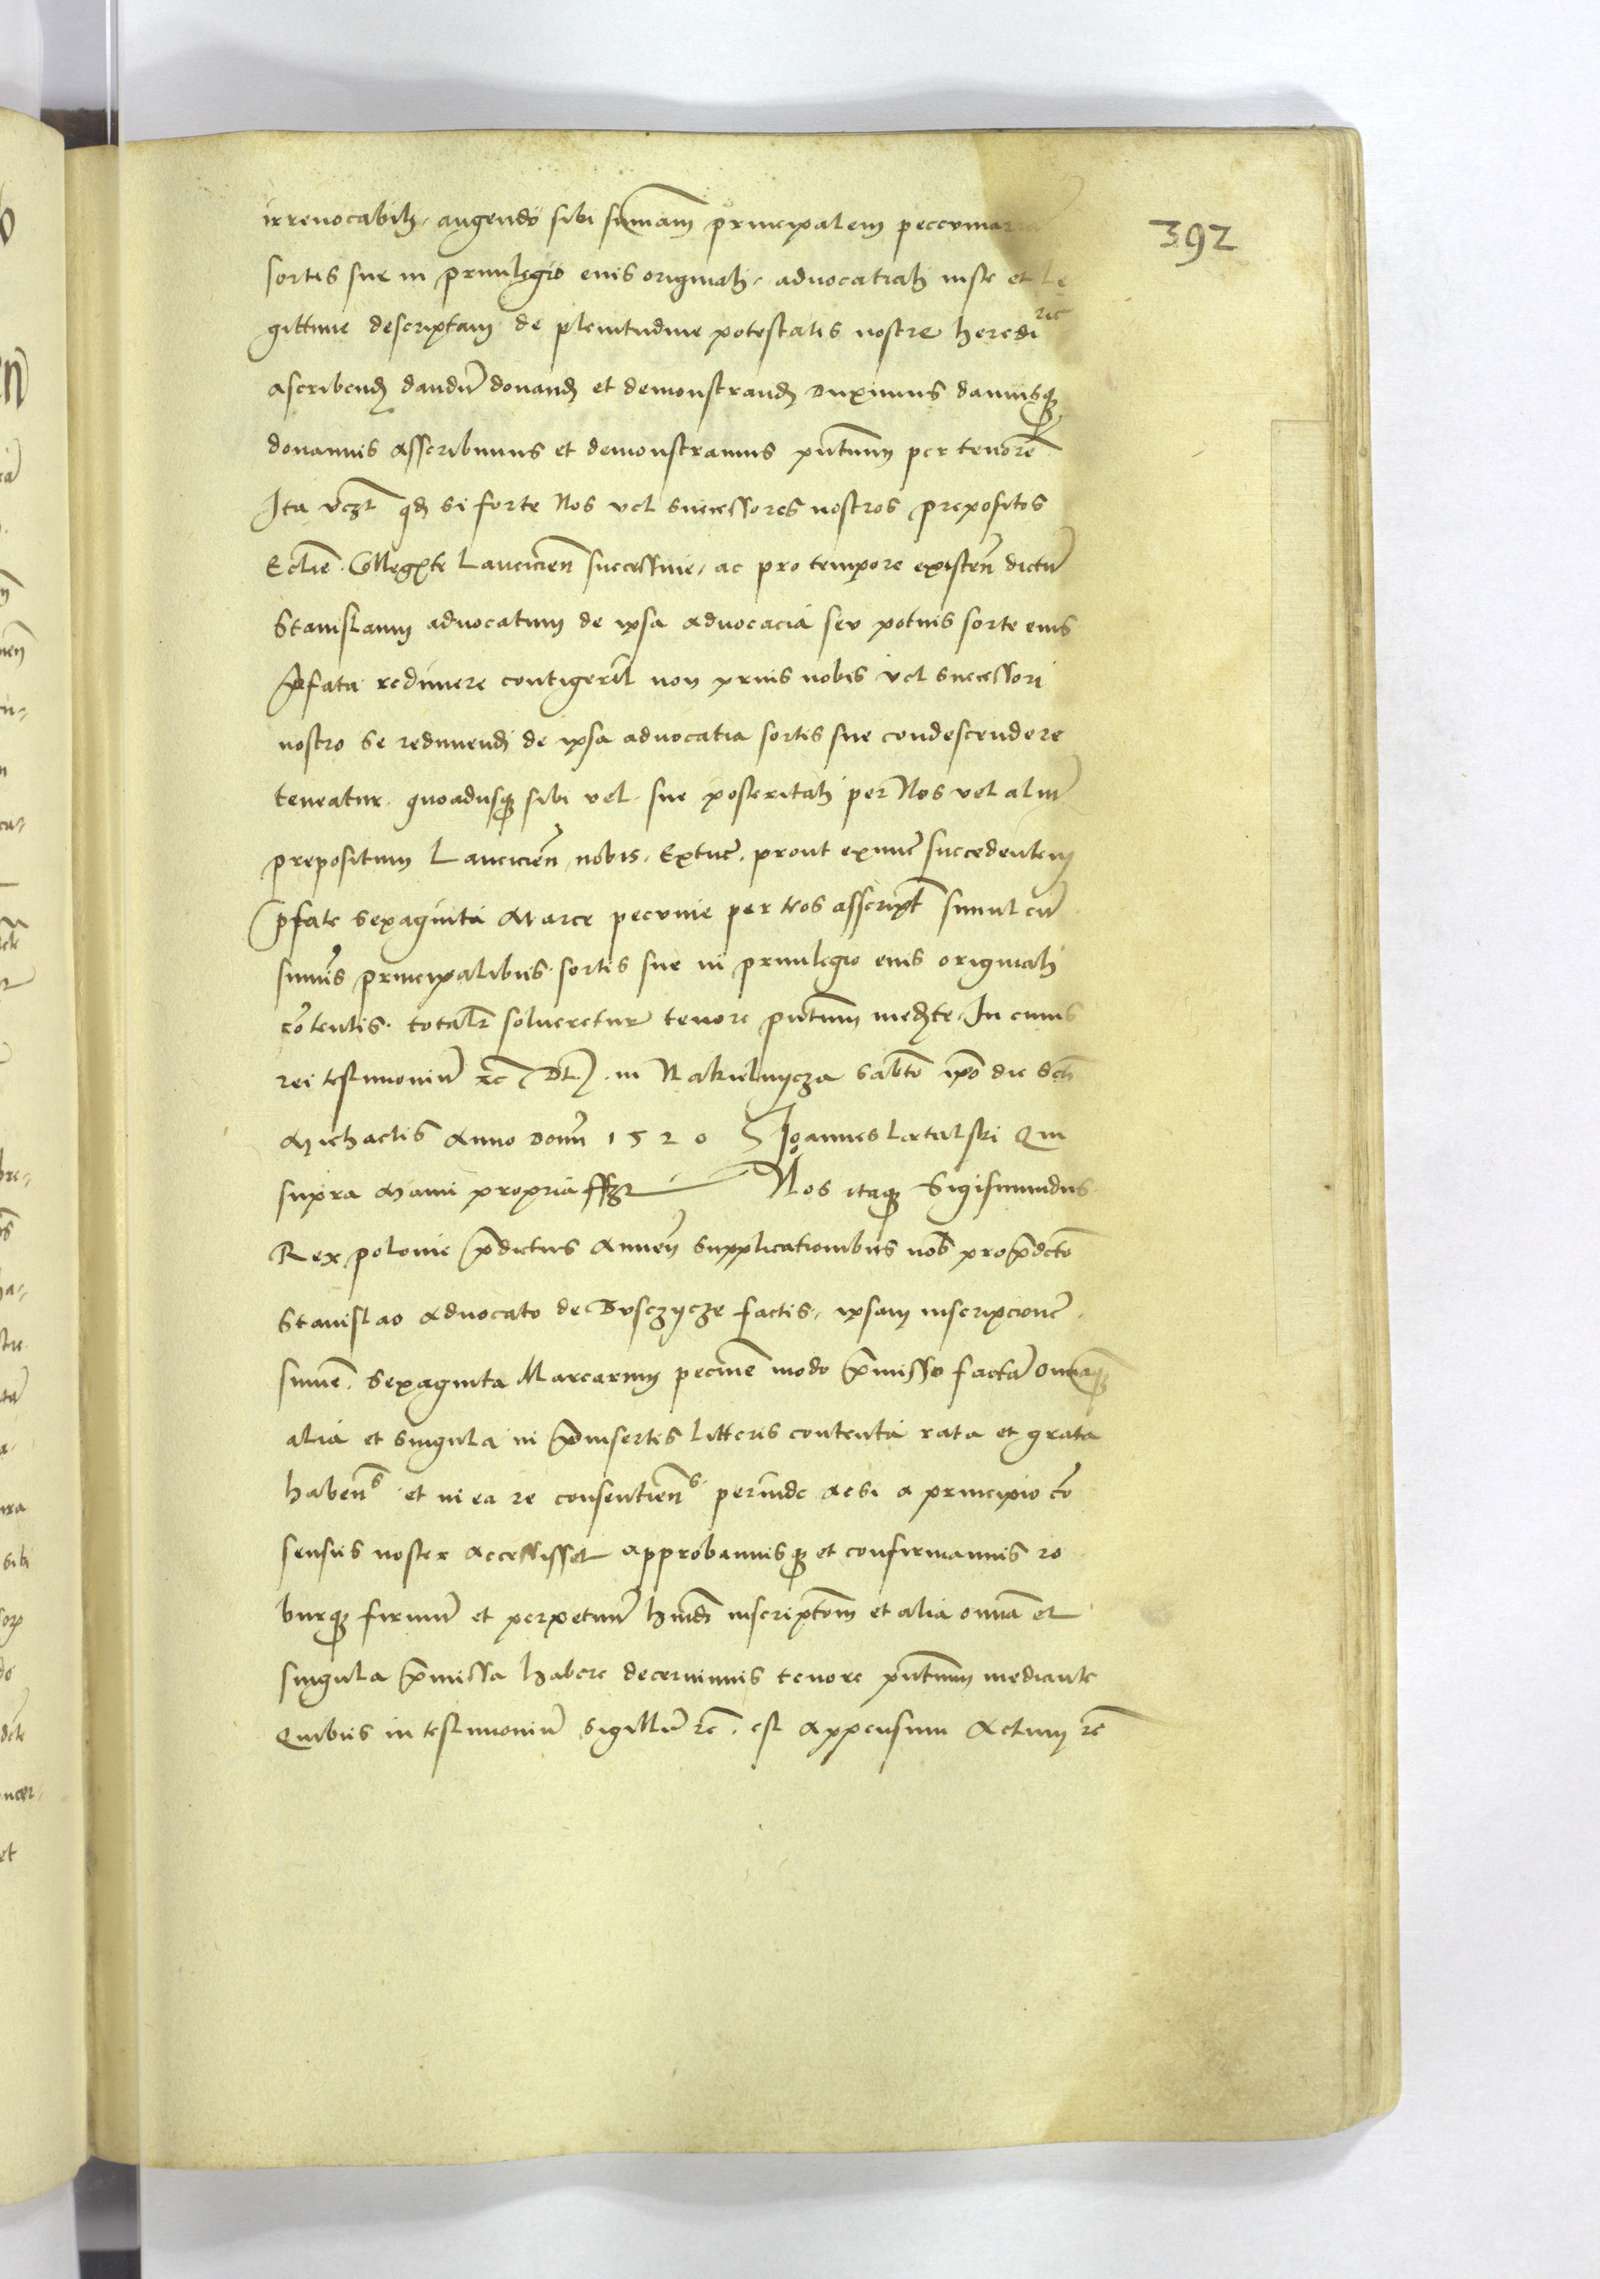 irrevocabilis augendo sibi sumam principalem peccuniaria
392
sortis sue in privilegio eius originali advocatiali iuste et le
gittime descriptam de plenitudine potestatis nostre heredi
rie
ascribendum dandum donandum et demonstrandum duximus damusque
donamus asscribimus et demonstramus pntium per tenore
Ita vczt qd si forte Nos vel successores nostros prepositos
Eclie Collegte Lancicien successive ac pro tempore existen dictum
Stanislaum advocatum de ipsa advocacia seu potius sorte eius
pfata redimere contigerit non prius nobis vel successori
nostro se redimendi de ipsa advocatia sortis sue condescendere
teneatur quoadusque sibi vel sue posteritati per Nos vel alium
prepositum Lancicien nobis Extunc prout exnunc succedentem
pfate sexaginta Marce pecunie per Nos asscript simul cum
sumis principalibus sortis sue in privilegio eius originali
cotentis totalr solveretur tenore pntium medte In cuius
rei testimonium rc Dt in Nakielnycza Sabto ipo die Scti
Michaelis Anno domi 1520 Ioannes Latalski Qui
supra Manu propria sszt Nos itaque Sigismundus
Rex polonie pdictus Annuen supplicationibus nob pro pdcto
Stanislao Advocato de Tusczycze factis ipsam inscripcione
sume Sexaginta Marcarum pecunie modo pmisso factam omniaque
alia et singula in pinsertis litteris contenta rata et grata
habens et in ea re consentiens perinde acsi a principio co
sensus noster accessisset approbamusque et confirmamus ro
burque firmum et perpetuum hmoi inscriptom et alia omia et
singula pmissa habere decernimus tenore pntium mediante
Quibus in testimonium Sigillum rc est appensum Actum rc